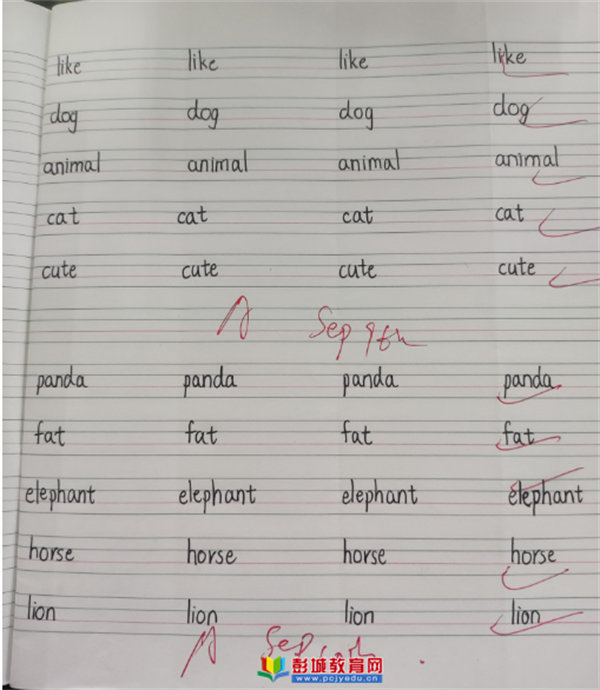 like like like like
dog dog dog dog
animal animal animal animal
cat cat cat cat
cute cute cute cute
A Sep 9th
panda panda panda panda
fat fat fat fat
elephant elephant elephant elephant
horse horse horse horse
lion lion lion lion
A Sep
彭城教育网
www.pcjyedu.cn